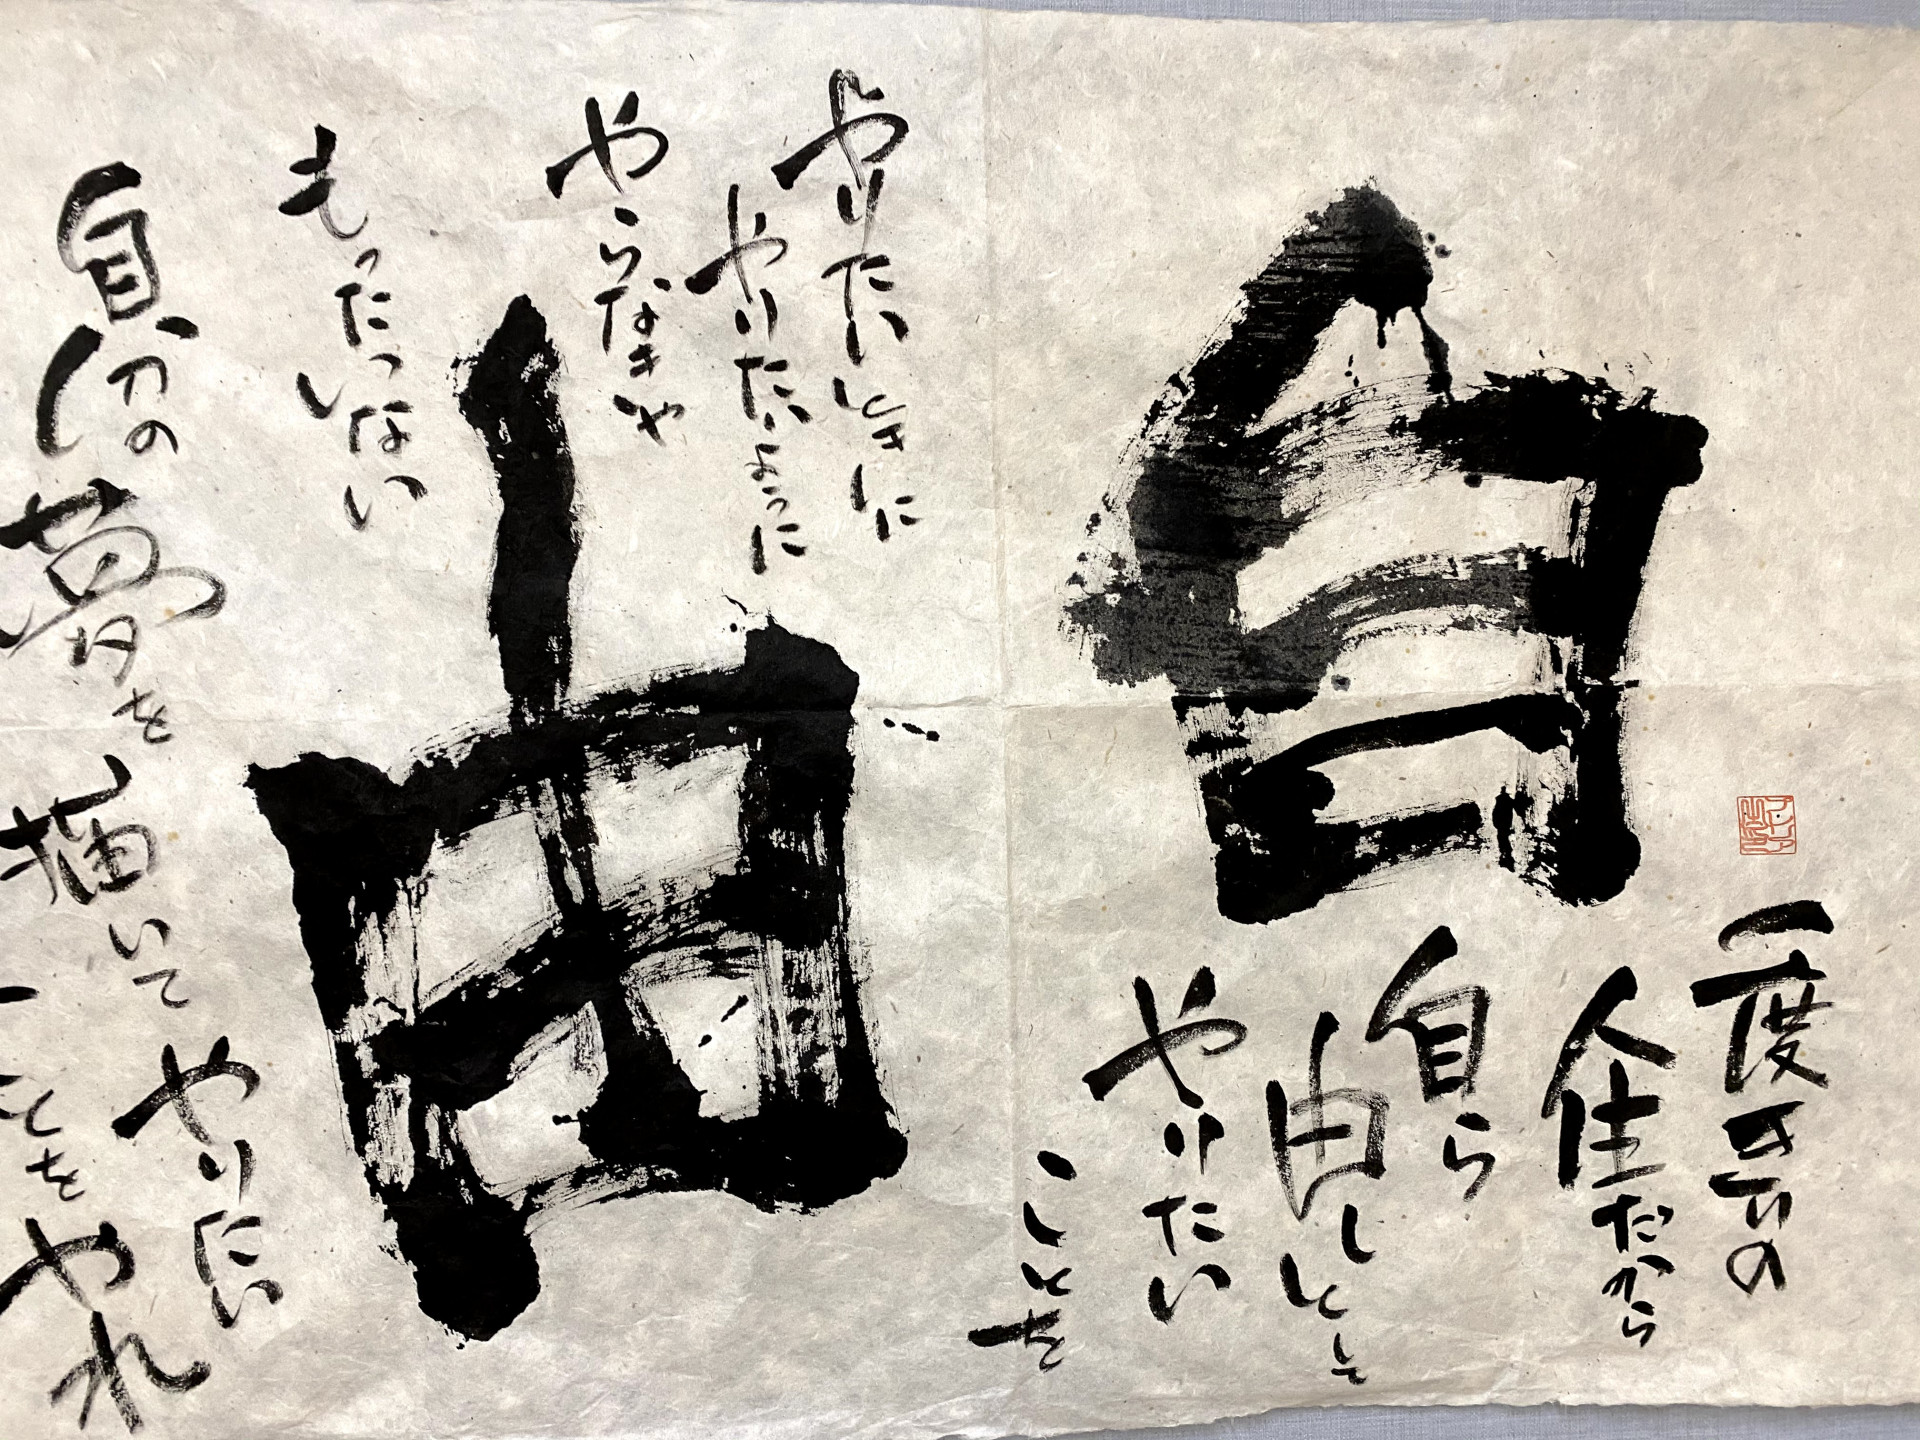 自由
一度きりの
人生だから
自ら
由しと
やりたい
ことを
やりたいときに
やりたいように
やらなきゃ
もったいない
自分の夢を描いて
やりたい
ことをやれ